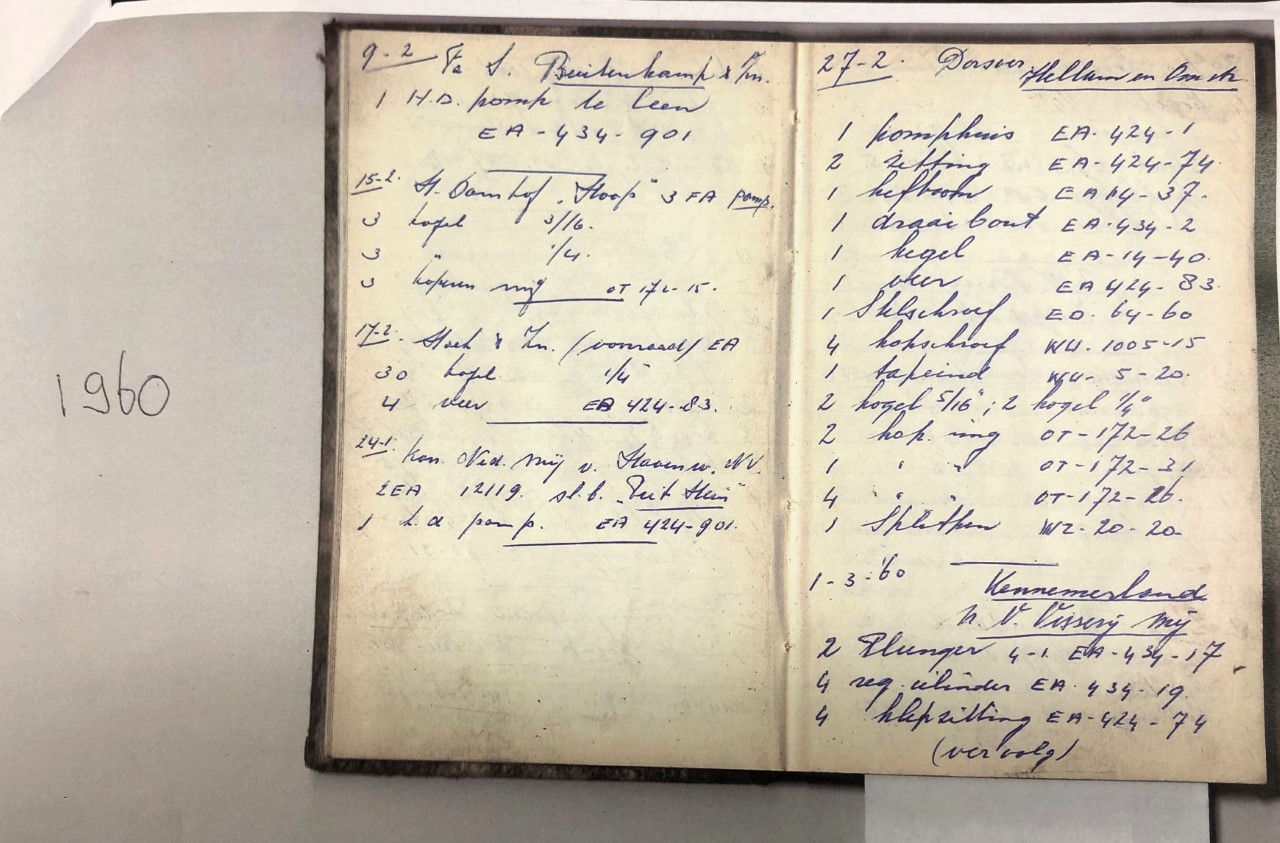 1960
9-2 Fa S. Buitenkamp & Zn.
1 H.D. pomp te leen
EA-434-901
15-2. St. Damhof „Stoop" 3 FA pomp.
3 kogel 3/16.
3 " 1/4.
3 koperen ring OT 172-15.
17-2. & Zn. (voorraad) EA
30 kogel 1/4"
4 veer EA 424-83.
24-1. Kon. Ned. Mij v. NV.
2EA 12119. sl.b.
1 h.d pomp. EA 424-901.
27-2. Hellum en Omstr.
1 pomphuis EA-424-1
2 zitting EA-424-74.
1 hefboom EA14-37.
1 draaibout EA-434-2
1 kegel EA-14-40.
1 veer EA 424-83.
1 Stelschroef EO. 64-60
4 kopschroef WU. 1005-15
1 tapeind WU- 5-20.
2 kogel 5/16"; 2 kogel 1/4"
2 kop. ring OT-172-26
1 " " OT-172-31
4 " " OT-172-16.
1 Splitpen WZ-20-20.
1-3-'60 Kennemerland
N.V. Visserij Mij
2 Plunger 4-1. EA-434-17
4 reg. cilinder EA-434-19.
4 klepzitting EA-424-74
(vervolg)